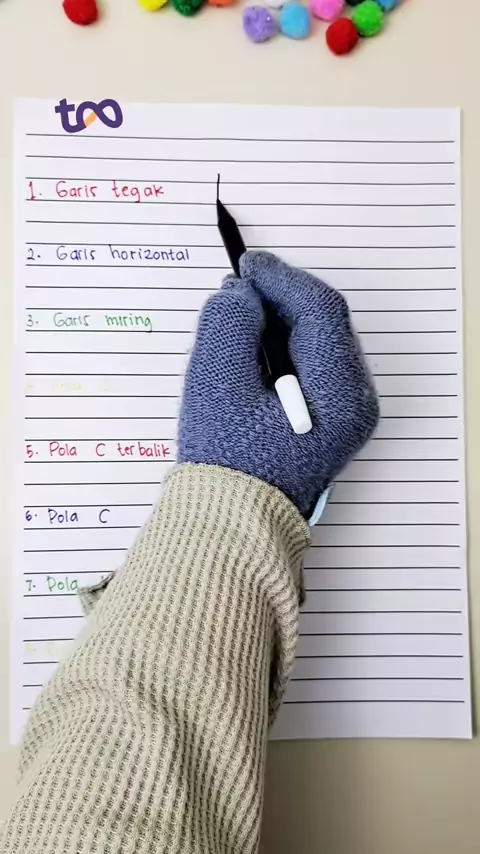 too
1. Garis tegak
2. Garis horizontal
3. Garis miring
5. Pola C terbalik
6. Pola C
7. Pola